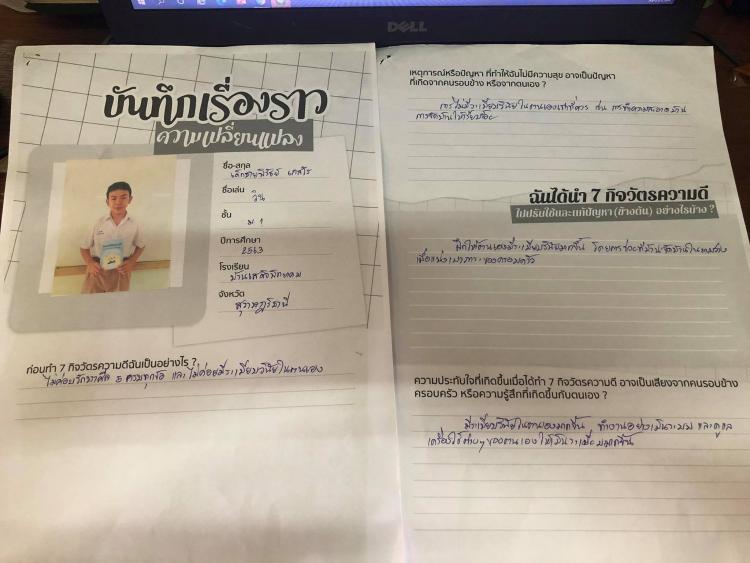 DELL
บันทึกเรื่องราว
ความเปลี่ยนแปลง
ชื่อ-สกุล
เด็กชายพีรวัธน์
ชื่อเล่น
วิน
ชั้น
ม.1
ปีการศึกษา
2563
โรงเรียน
จังหวัด
สุราษฎร์ธานี
ก่อนทำ 7 กิจวัตรความดีฉันเป็นอย่างไร ?
ไม่ค่อยรักษาศีล 5 ครบทุกข้อ และ ไม่ค่อยมีระเบียบวินัยในตนเอง
เหตุการณ์หรือปัญหา ที่ทำให้ฉันไม่มีความสุข อาจเป็นปัญหา
ที่เกิดจากคนรอบข้าง หรือจากตนเอง ?
การไม่มีระเบียบวินัยในตนเองเท่าที่ควร เช่น การทำความสะอาดบ้าน
การจัดบ้านให้เรียบร้อย
ฉันได้นำ 7 กิจวัตรความดี
ไปปรับใช้และแก้ปัญหา (ข้างต้น) อย่างไรบ้าง ?
ฝึกให้ตนเองมีระเบียบวินัยมากขึ้น โดยการช่วยที่บ้าน
เพื่อแบ่งเบาภาระของครอบครัว
ความประทับใจที่เกิดขึ้นเมื่อได้ทำ 7 กิจวัตรความดี อาจเป็นเสียงจากคนรอบข้าง
ครอบครัว หรือความรู้สึกที่เกิดขึ้นกับตนเอง ?
มีระเบียบวินัยในตนเองมากขึ้น ทำงานอย่างเป็นระบบ และดูแล
เครื่องใช้ต่างๆ ของตนเองให้เป็นระเบียบมากขึ้น